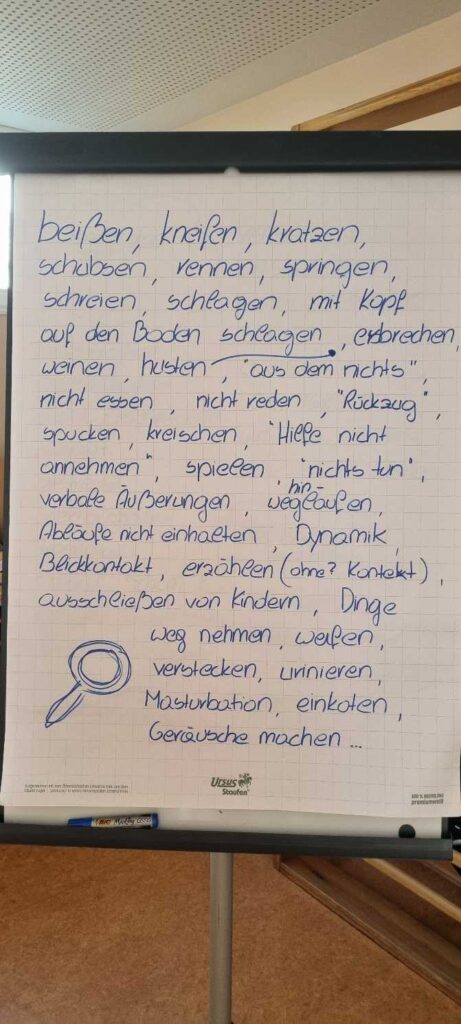 beißen, kneifen, kratzen,
schubsen, rennen, springen,
schreien, schlagen, mit Kopf
auf den Boden schlagen, erbrechen,
weinen, husten, "aus dem nichts",
nicht essen, nicht reden, "Rückzug",
spucken, kreischen, "Hilfe nicht
annehmen", spielen, "nichts tun",
hin
verbale Äußerungen, wegläufen,
Abläufe nicht einhalten, Dynamik,
Blickkontakt, erzählen (ohne? Kontext),
ausschließen von Kindern, Dinge
weg nehmen, werfen,
verstecken, urinieren,
Masturbation, einkoten,
Geräusche machen ...
Ursus
Staufen
100% RECYCLING
premiumweiß